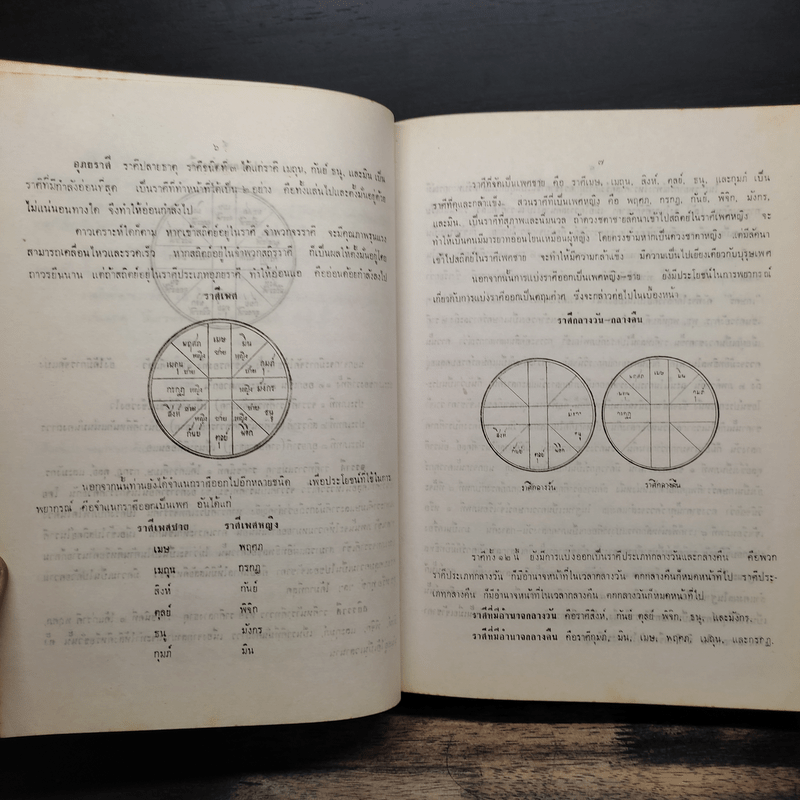 ๖
อุภยราศี ราศีปลายธาตุ ราศีชนิดที่ ๓ ได้แก่ราศี เมถุน, กันย์ ธนู, และมีน เป็น
ราศีที่มีกำลังอ่อนที่สุด เป็นราศีที่ทำหน้าที่ได้เป็น ๒ อย่าง คือทั้งแล่นไปและตั้งมั่นอยู่ด้วย
ไม่แน่นอนทางใด จึงทำให้อ่อนกำลังไป
ดาวเคราะห์ใดก็ตาม หากเข้าสถิตย์อยู่ในราศี จำพวกจรราศี จะมีคุณภาพรุนแรง
สามารถเคลื่อนไหวและรวดเร็ว หากสถิตย์อยู่ในจำพวกสถิรราศี ก็เป็นผลให้ตั้งมั่นอยู่โดย
ถาวรยืนนาน แต่ถ้าสถิตย์อยู่ในราศีประเภทอุภยราศี ทำให้อ่อนแอ คือถอนถ้อยกำลังลงไป
ราศีเพศ
พฤศภ เมษ มีน
หญิง ชาย หญิง
เมถุน ชาย ชาย กุมภ์
กรกฏ หญิง หญิง มังกร
สิงห์ ชาย ชาย ธนู
หญิง ชาย หญิง
กันย์ ตุลย์ พิจิก
นอกจากนั้นท่านยังได้จำแนกราศีออกไปอีกหลายชนิด เพื่อประโยชน์ที่ใช้ในการ
พยากรณ์ คือจำแนกราศีออกเป็นเพศ อันได้แก่
ราศีเพศชาย ราศีเพศหญิง
เมษ พฤศภ
เมถุน กรกฏ
สิงห์ กันย์
ตุลย์ พิจิก
ธนู มังกร
กุมภ์ มีน
๗
ราศีที่จัดเป็นเพศชาย คือ ราศีเมษ, เมถุน, สิงห์, ตุลย์, ธนู, และกุมภ์ เป็น
ราศีที่ดุและกล้าแข็ง. ส่วนราศีที่เป็นเพศหญิง คือ พฤศภ, กรกฏ, กันย์, พิจิก, มังกร,
และมีน, เป็นราศีที่สุภาพและนิ่มนวล ถ้าดวงชะตาชายลัคนาเข้าไปสถิตย์ในราศีเพศหญิง จะ
ทำให้เป็นคนมีมารยาทอ่อนโยนเหมือนผู้หญิง โดยตรงข้ามหากเป็นดวงชาตาหญิง แต่มีลัคนา
เข้าไปสถิตย์ในราศีเพศชาย จะทำให้มีความกล้าแข็ง มีความเป็นไปเยี่ยงเดียวกับบุรุษเพศ
นอกจากนั้นการแบ่งราศีออกเป็นเพศหญิง-ชาย ยังมีประโยชน์ในการพยากรณ์
เกี่ยวกับการแบ่งราศีออกเป็นดฤณค่าศ ซึ่งจะกล่าวต่อไปในเบื้องหน้า
ราศีกลางวัน-กลางคืน
มังกร
สิงห์ ธนู
กันย์ ตุลย์ พิจิก
ราศีกลางวัน
พฤศภ เมษ มีน
กุมภ์
กรกฏ
ราศีกลางคืน
ราศีทั้ง ๑๒ นี้ ยังมีการแบ่งออกเป็นราศีประเภทกลางวันและกลางคืน คือพวก
ราศีประเภทกลางวัน ก็มีอำนาจหน้าที่ในเวลากลางวัน ตกกลางคืนก็หมดหน้าที่ไป ราศีประ-
เภทกลางคืน ก็มีอำนาจหน้าที่ในเวลากลางคืน ตกกลางวันก็หมดหน้าที่ไป
ราศีที่มีอำนาจกลางวัน คือราศีสิงห์, กันย์ ตุลย์ พิจิก, ธนู, และมังกร.
ราศีที่มีอำนาจกลางคืน คือราศีกุมภ์, มีน, เมษ, พฤศภ, เมถุน, และกรกฏ.